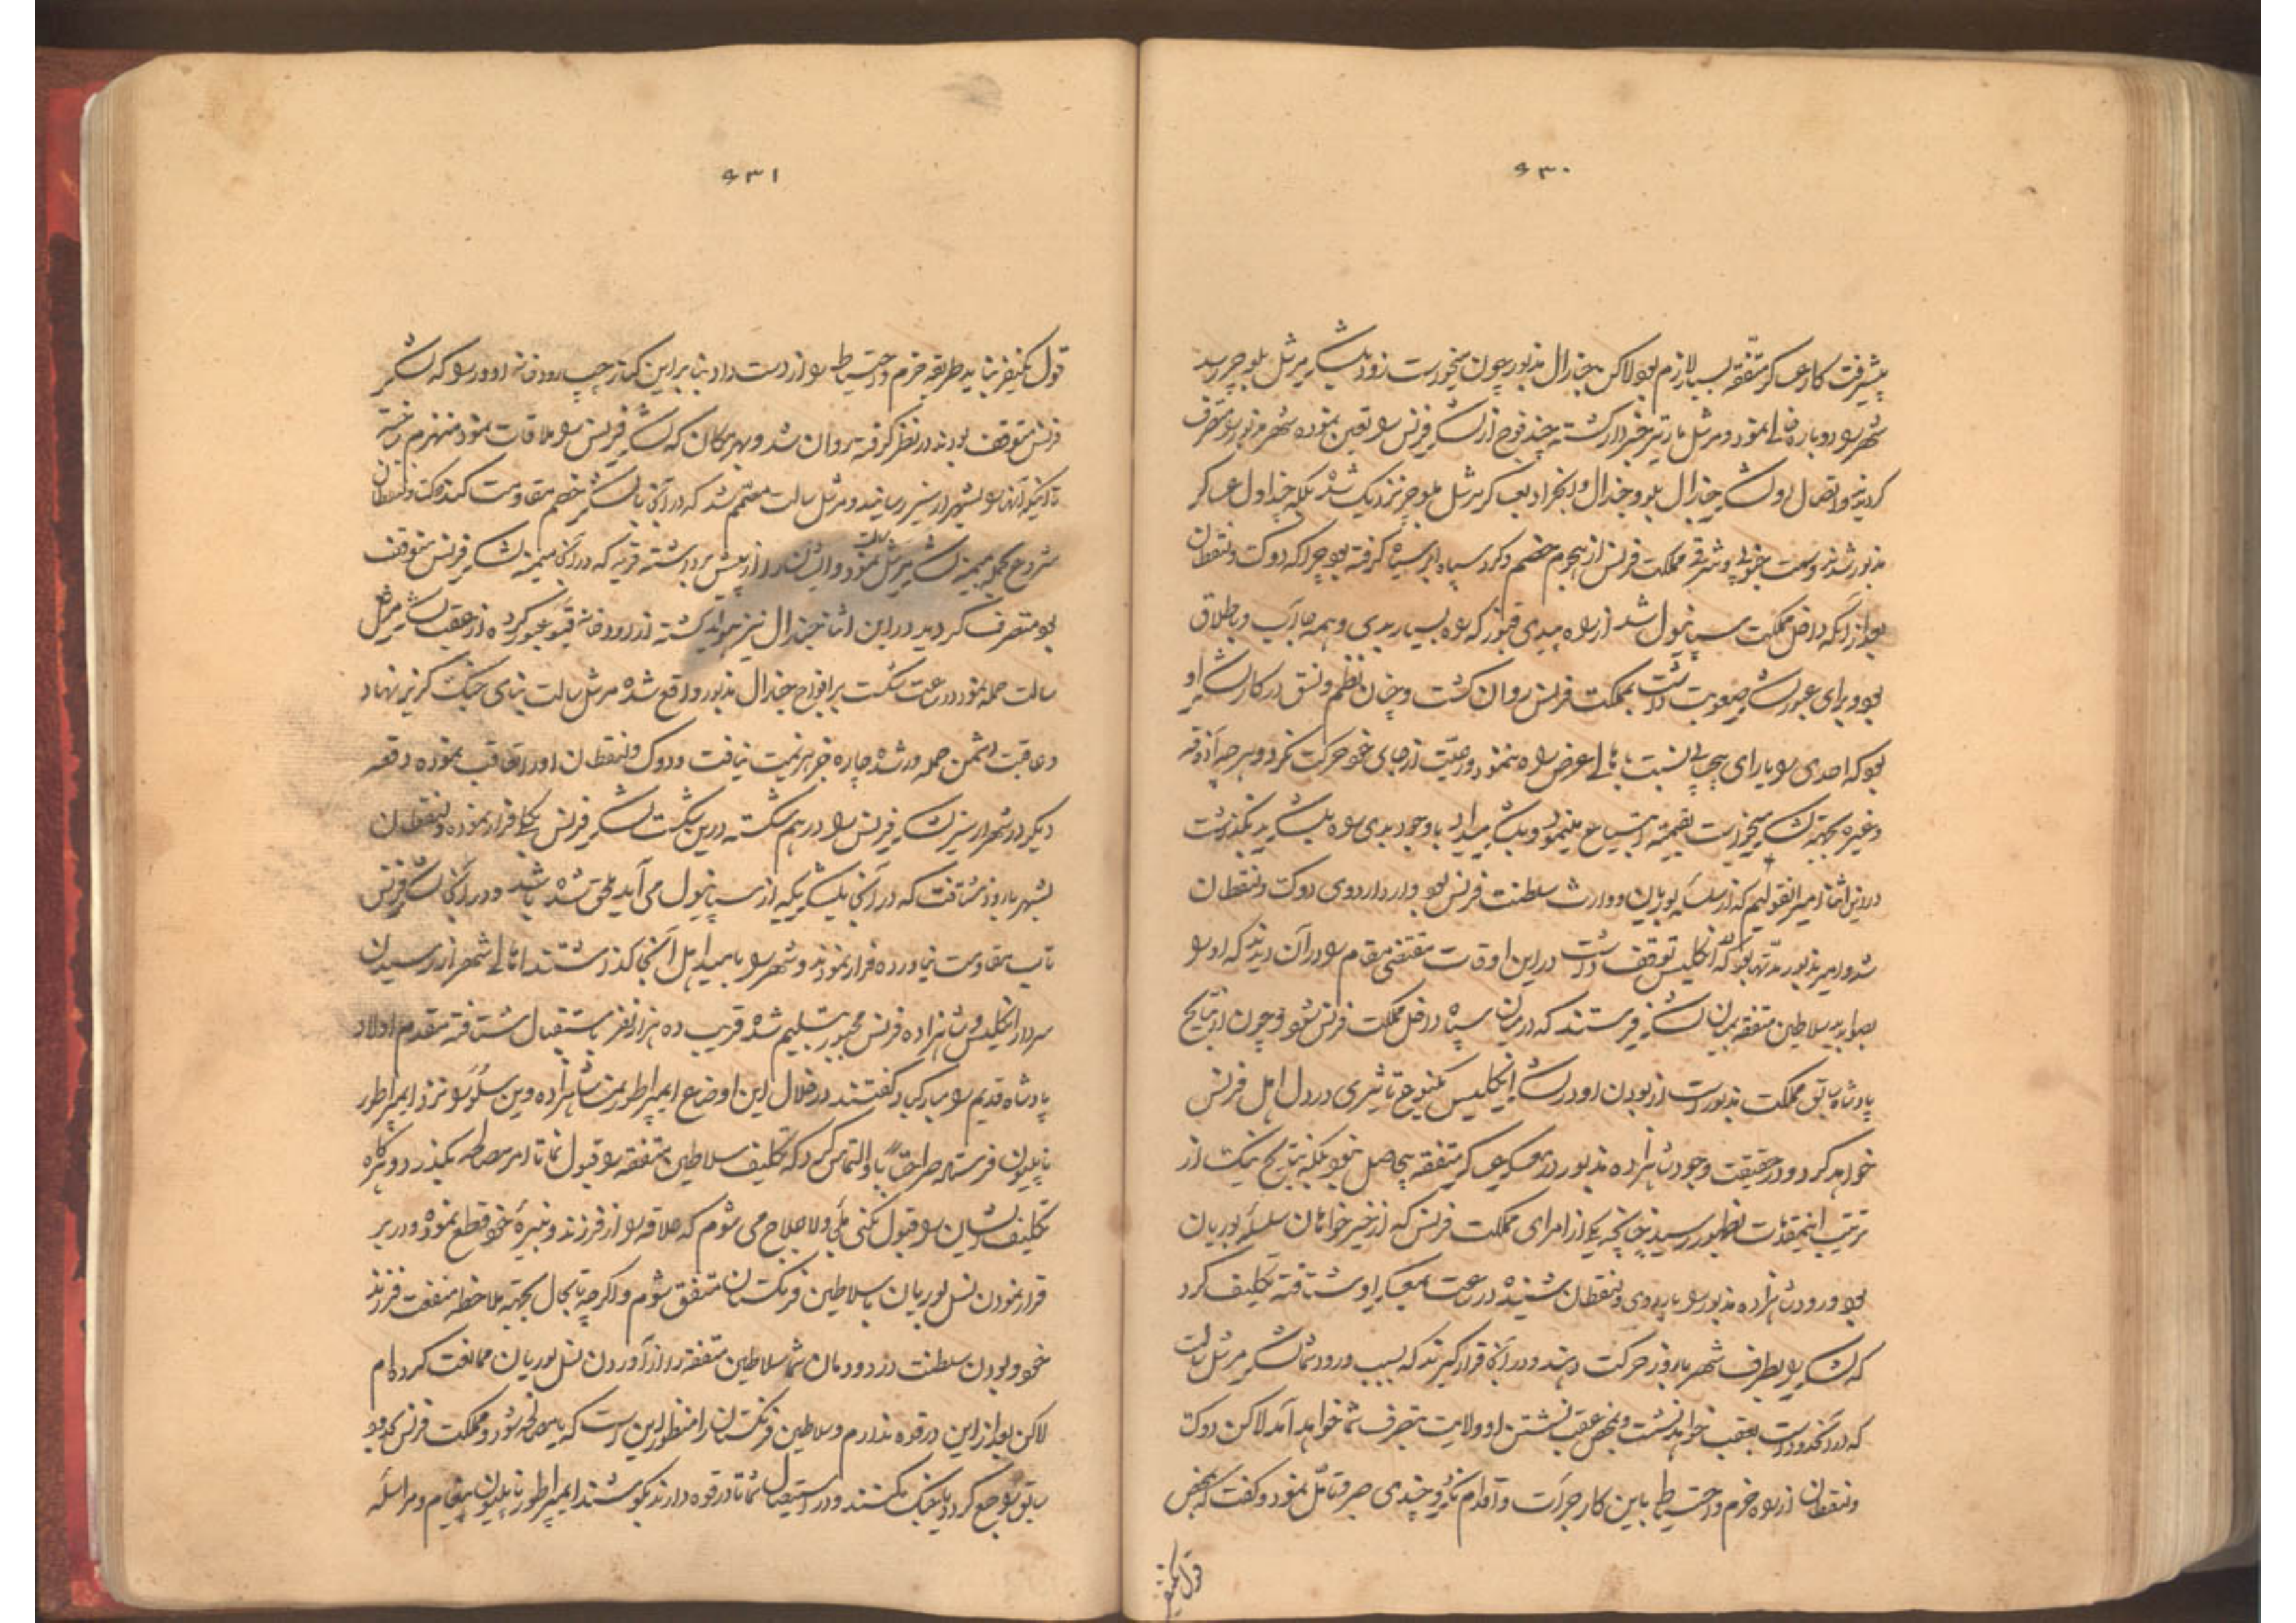 ۶۳۰
پیشرفت کار عساکر متفقه بسیار لازم بود لاکن جنارال مذبور چون میخواست زود بلشکر مرشل بلوچر رسد
شهر را دوباره خالی نمود و مرشل مارتیر خبردار گشته چند فوج از لشکر فرنس را تعین نموده شهر مذبور را متصرف
گردیدند و اتصال لشکر جنارال بلو و جنرال با عساکر مرشل بلوچر نزدیک شد بلکه چند اول عساکر
مذبور شدند و سمت جنوبی و شرقی مملکت فرنس از هجوم خصم و گرد سپاه ابر سیاه گرفته بود چرا که دوک ولنقطان
بعد از آنکه داخل مملکت سپانیول شد از راه که راه بسیار بدی و همه جا آب و باطلاق
بود و برای عبور لشکر صعوبت داشت بمملکت فرنس روان گشت و چنان نظم و نسق در کار لشکر او
بود که احدی را یارای بیحسابی نسبت باهالی عرض راه ننمود و رعیت از جای خود حرکت نکرد و هر چه آذوقه
و غیره بجهة لشکر میخواست بقیمة ابتیاع مینمود و بلشکر میداد با وجود بدی راه بلشکر بد نگذشت
در این اثنا امیر انقولیم که از سلسله بوربن و وارث سلطنت فرنس بود وارد اردوی دوک ولنقطان
شد و امیر مذبور مدتها بود که در انگلیس توقف داشت در این اوقات مقتضی مقام را در آن دیدند که او را
بصوابدید سلاطین متفقه بمیان لشکر فرستند که در میان سپاه داخل مملکت فرنس شود و چون از نتایج
پادشاه سابق مملکت مذبور است از بودن او در لشکر انگلیس یکنوع تاثیری در دل اهل فرنس
خواهد کرد و در حقیقت وجود شاهزاده مذبور در معسکر عساکر متفقه بیحاصل نبود بلکه نتایج نیک از
ترتیب این مقدمات بظهور رسید چنانچه یکی از امرای مملکت فرنس که از خیرخواهان سلسله بوربان
بود ورود شاهزاده مذبور را باردوی ولنقطان شنیده در ساعت بمعسکر او شتافته تکلیف کرد
که لشکر را بطرف شهر باردز حرکت دهند و در آنجا قرار گیرند که بسبب ورود شما لشکر مرشل سالت
که در آنحدود است بعقب خواهد نشست و بمحض عقب نشستن او ولایت بتصرف شما خواهد آمد لاکن دوک
ولنقطان از راه حزم و احتیاط باین کار جرات و اقدام نکرد و چندی صرف تامل نمود و گفت که بمحض
قول یکنفر
۶۳۱
قول یکنفر نباید طریقه حزم و احتیاط را از دست داد بنابراین کنار چپ رودخانه ادور را که لشکر
فرنس متوقف بودند در نظر گرفته روان شد و بهر مکان که لشکر فرنس را ملاقات نمود منهزم ساخته
تا اینکه آنها را بشهر ارسنیز رسانید و مرشل سالت مصمم شد که در آنجا با لشکر خصم مقاومت کند دوک ولنقطان
شروع بحمله میمنه لشکر مرشل سالت نمود و ایشان را از پیش برداشته قریه که در آنجا میمنه لشکر فرنس متوقف
بود متصرف گردید در این اثنا جنرال نیز گشته از رودخانه عبور کرده از عقب لشکر مرشل
سالت حمله نمود در ساعت شکست بر افواج جنرال مذبور واقع شده مرشل سالت بنای جنگ گریز نهاد
و عاقبت دشمن حمله‌ور شده چاره جز هزیمت نیافت و دوک ولنقطان او را تعاقب نموده دفعه
دیگر در شهر ارسنیز لشکر فرنس را در هم شکسته در این شکست لشکر فرنس بکلی فرار نموده ولنقطان
بشهر باردز شتافت که در آنجا بلشکریکه از سپانیول می آید ملحق شده باشد و در آنجا لشکر فرنس
تاب مقاومت نیاورده فرار نمودند و شهر را بامید اهل آنجا گذاشتند اهالی شهر از رسیدن
سردار انگلیس و شاهزاده فرنس مجبور بتسلیم شده قریب ده هزار نفر باستقبال شتافته مقدم اولاد
پادشاه قدیم را مبارکباد گفتند در خلال این اوضاع ایمپراطور نمسا شاهزاده وین سلو را نزد ایمپراطور
ناپلیون فرستاده صراحتاً باو التماس کرد که تکلیف سلاطین متفقه را قبول نما تا امر مصالحه بگذرد و هرگاه
تکلیف ایشان را قبول نکنی ملجا و لاعلاج می شوم که علاقه را از فرزند و نبیره خود قطع نموده و در بر
قرار نمودن نسل بوربان با سلاطین فرنگستان متفق شوم و اگرچه تا بحال بجهة ملاحظه منفعت فرزند
خود و بودن سلطنت در دودمان شما سلاطین متفقه را از آوردن نسل بوربان ممانعت کرده ام
لاکن بعد از این در قوه ندارم و سلاطین فرنگستان را منظور این است که یا مصالحه شود و مملکت فرنس بحدود
سابق راجع گردد یا جنگ کنند و در استیصال شما تا در قوه دارند بکوشند ایمپراطور ناپلیون پیغام و مراسله